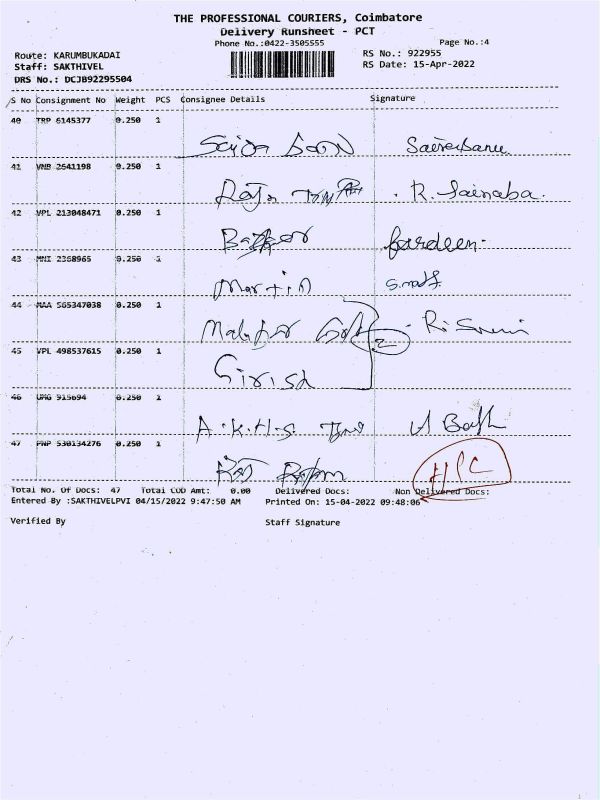 THE PROFESSIONAL COURIERS, Coimbatore
Delivery Runsheet - PCT
Phone No.:0422-3505555
Page No.:4
Route: KARUMBUKADAI
RS No.: 922955
Staff: SAKTHIVEL
RS Date: 15-Apr-2022
DRS No.: DCJB92295504
S No Consignment No Weight PCS Consignee Details Signature
40 TRP 6145377 0.250 1
Banu Sairabanu
41 VNB 2641198 0.250 1
Raja R. Sainaba.
42 VPL 213048471 0.250 1
fardeen.
43 MNI 2368965 0.250 1
Martin
44 MAA 565347038 0.250 1
2
45 VPL 498537615 0.250 1
Girish
46 UMG 915694 0.250 1
A.K.H.S
47 PNP 530134276 0.250 1
Total No. Of Docs: 47 Total COD Amt: 0.00 Delivered Docs: Non Delivered Docs:
Entered By :SAKTHIVELPVI 04/15/2022 9:47:50 AM Printed On: 15-04-2022 09:48:06
Verified By Staff Signature